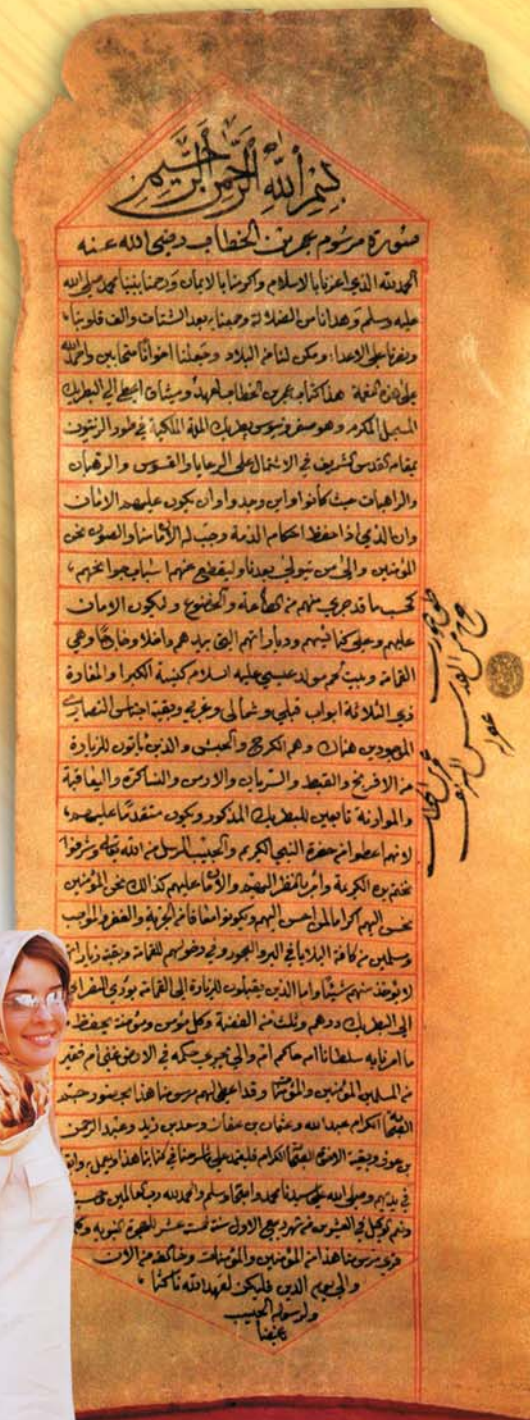 بسم الله الرحمن الرحيم
صورة مرسوم عمر بن الخطاب رضي الله عنه
الحمد لله الذي اعزنا بالاسلام واكرمنا بالايمان ورحمنا بنبينا محمد صلى الله
عليه وسلم وهدانا من الضلالة وجمعنا به بعد الشتات والف قلوبنا
ونصرنا على الاعداء ومكن لنا من البلاد وجعلنا اخوانا متحابين واحمدوا الله
على هذه النعمة هذا كتاب عمر بن الخطاب لعهد وميثاق اعطي الى البطريك
المبجل المكرم وهو صفرونيوس بطريك الملة الملكية في طور الزيتون
بمقام القدس الشريف في الاشتمال على الرعايا والقسوس والرهبان
والراهبات حيث كانوا واين وجدوا وان يكون عليهم الامان
وان الذمي اذا حفظ احكام الذمة وجب له الامان والصون نحن
المؤمنين والى من يتولى بعدنا وليقطع عنهم اسباب جوانحهم
كحسب ما قد جرى منهم من الطاعة والخضوع وليكون الامان
عليهم وعلى كنائسهم ودياراتهم التي بيدهم داخلا وخارجا وهي
القمامة وبيت لحم مولد عيسى عليه السلام كنيسة الكبرا والمغارة
ذي الثلاثة ابواب قبلي وشمالي وغربي وبقية اجناس النصارى
الموجودين هناك وهم الكرج والحبش والذين ياتون للزيارة
من الافرنج والقبط والسريان والارمن والنساطرة واليعاقبة
والموارنة تابعين للبطريك المذكور ويكون متقدما عليهم
لانهم اعطوا من حضرة النبي الكريم والحبيب المرسل من الله تعالى وشرفوا
بختم يده الكريمة وامر بالنظر اليهم والامان عليهم كذالك نحن المؤمنين
نحسن اليهم اكراما لمن احسن اليهم ويكونوا معافا من الجزية والغفر والمواجب
ومسلمين من كافة البلايا في البر والبحور وفي دخولهم للقمامة وبقية زياراتهم
لا يؤخذ منهم شيئا واما الذين يقبلون للزيارة الى القمامة يؤدي النصراني
الى البطريك درهم وثلث من الفضة وكل مؤمن ومؤمنة يحفظ
ما امرنا به سلطانا ام حاكم ام والي يجري حكمه في الارض غني ام فقير
من المسلمين المؤمنين والمؤمنات وقد اعطي لهم مرسومنا هذا بحضور جم
الصحابة الكرام عبد الله وعثمان بن عفان وسعد بن زيد وعبد الرحمن
بن عوف وبقية الاخوة الصحابة الكرام فليعتمد على ما شرحنا في كتابنا هذا ويعمل به
في يدهم وصلى الله على سيدنا محمد واصحابه وسلم والحمد لله رب العالمين
ونعم الوكيل في العشرين من شهر ربيع الاول سنة خمسة عشر للهجرة النبوية وكل
قرئ مرسومنا هذا من المؤمنين والمؤمنات وخالفه من الان
والى يوم الدين فليكن لعهد الله ناكثا
ولرسوله الحبيب
باغضا